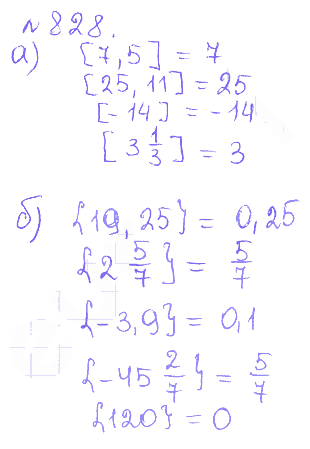 № 828.
а) [7,5] = 7
[25,11] = 25
[-14] = -14
[3 1/3] = 3
б) {19,25} = 0,25
{2 5/7} = 5/7
{-3,9} = 0,1
{-45 2/7} = 5/7
{120} = 0